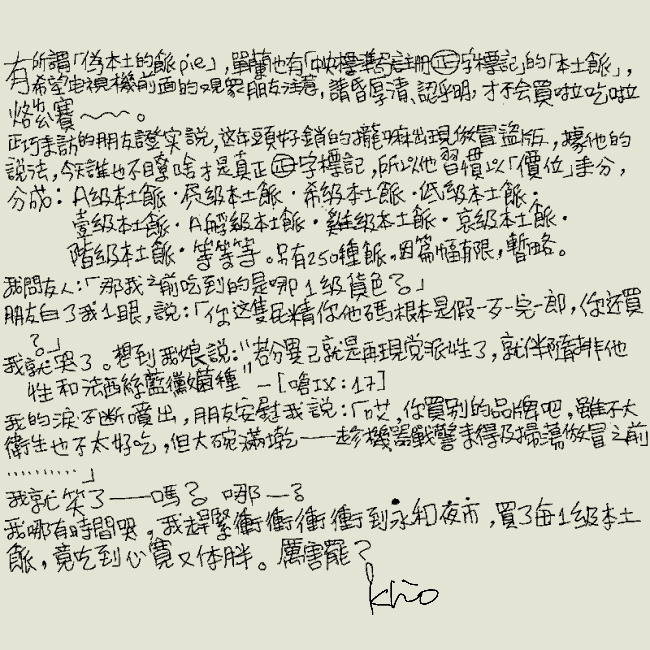 有所謂「偽本土的飯pie」,單蘭也有「中央標準局註冊㊣字標記」的「本土飯」,
希望電視機前面的觀眾朋友注意,請看厚清、認乎明,才不会買啦吃啦
烙出賽～～。
正巧來訪的朋友證實說,這年頭好銷的攏嘛出現做冒盜版,據他的
說法,今天誰也不曉啥才是真正㊣字標記,所以他習慣以「價位」來分,
分成:A級本土飯·低級本土飯·希級本土飯·低級本土飯·
壹級本土飯·A級本土飯·雞級本土飯·哀級本土飯·
階級本土飯·等等等。只有250種飯。因篇幅有限,暫略。
我問友人:「那我之前吃到的是哪1級貨色?」
朋友白了我1眼,說:「你这隻民精你他碼根本是假一歹一完一郎,你还買
?」
我就哭了。想到我娘說:"若分異己就是再現党派性了,就伴隨排他
性和法西絲藍黴菌種"—[嚕IX:17]
我的淚不斷噴出,朋友安慰我說:「哎,你買別的品牌吧,雖不大
衛生也不太好吃,但大碗滿墘——趁機器戰警來得及掃蕩做冒之前
…………」
我就笑了——嗎?哪—?
我哪有時間哭。我趕緊衝衝衝衝到永和夜市,買了每1級本土
飯,竟吃到心寬又体胖。厲害罷?
khio